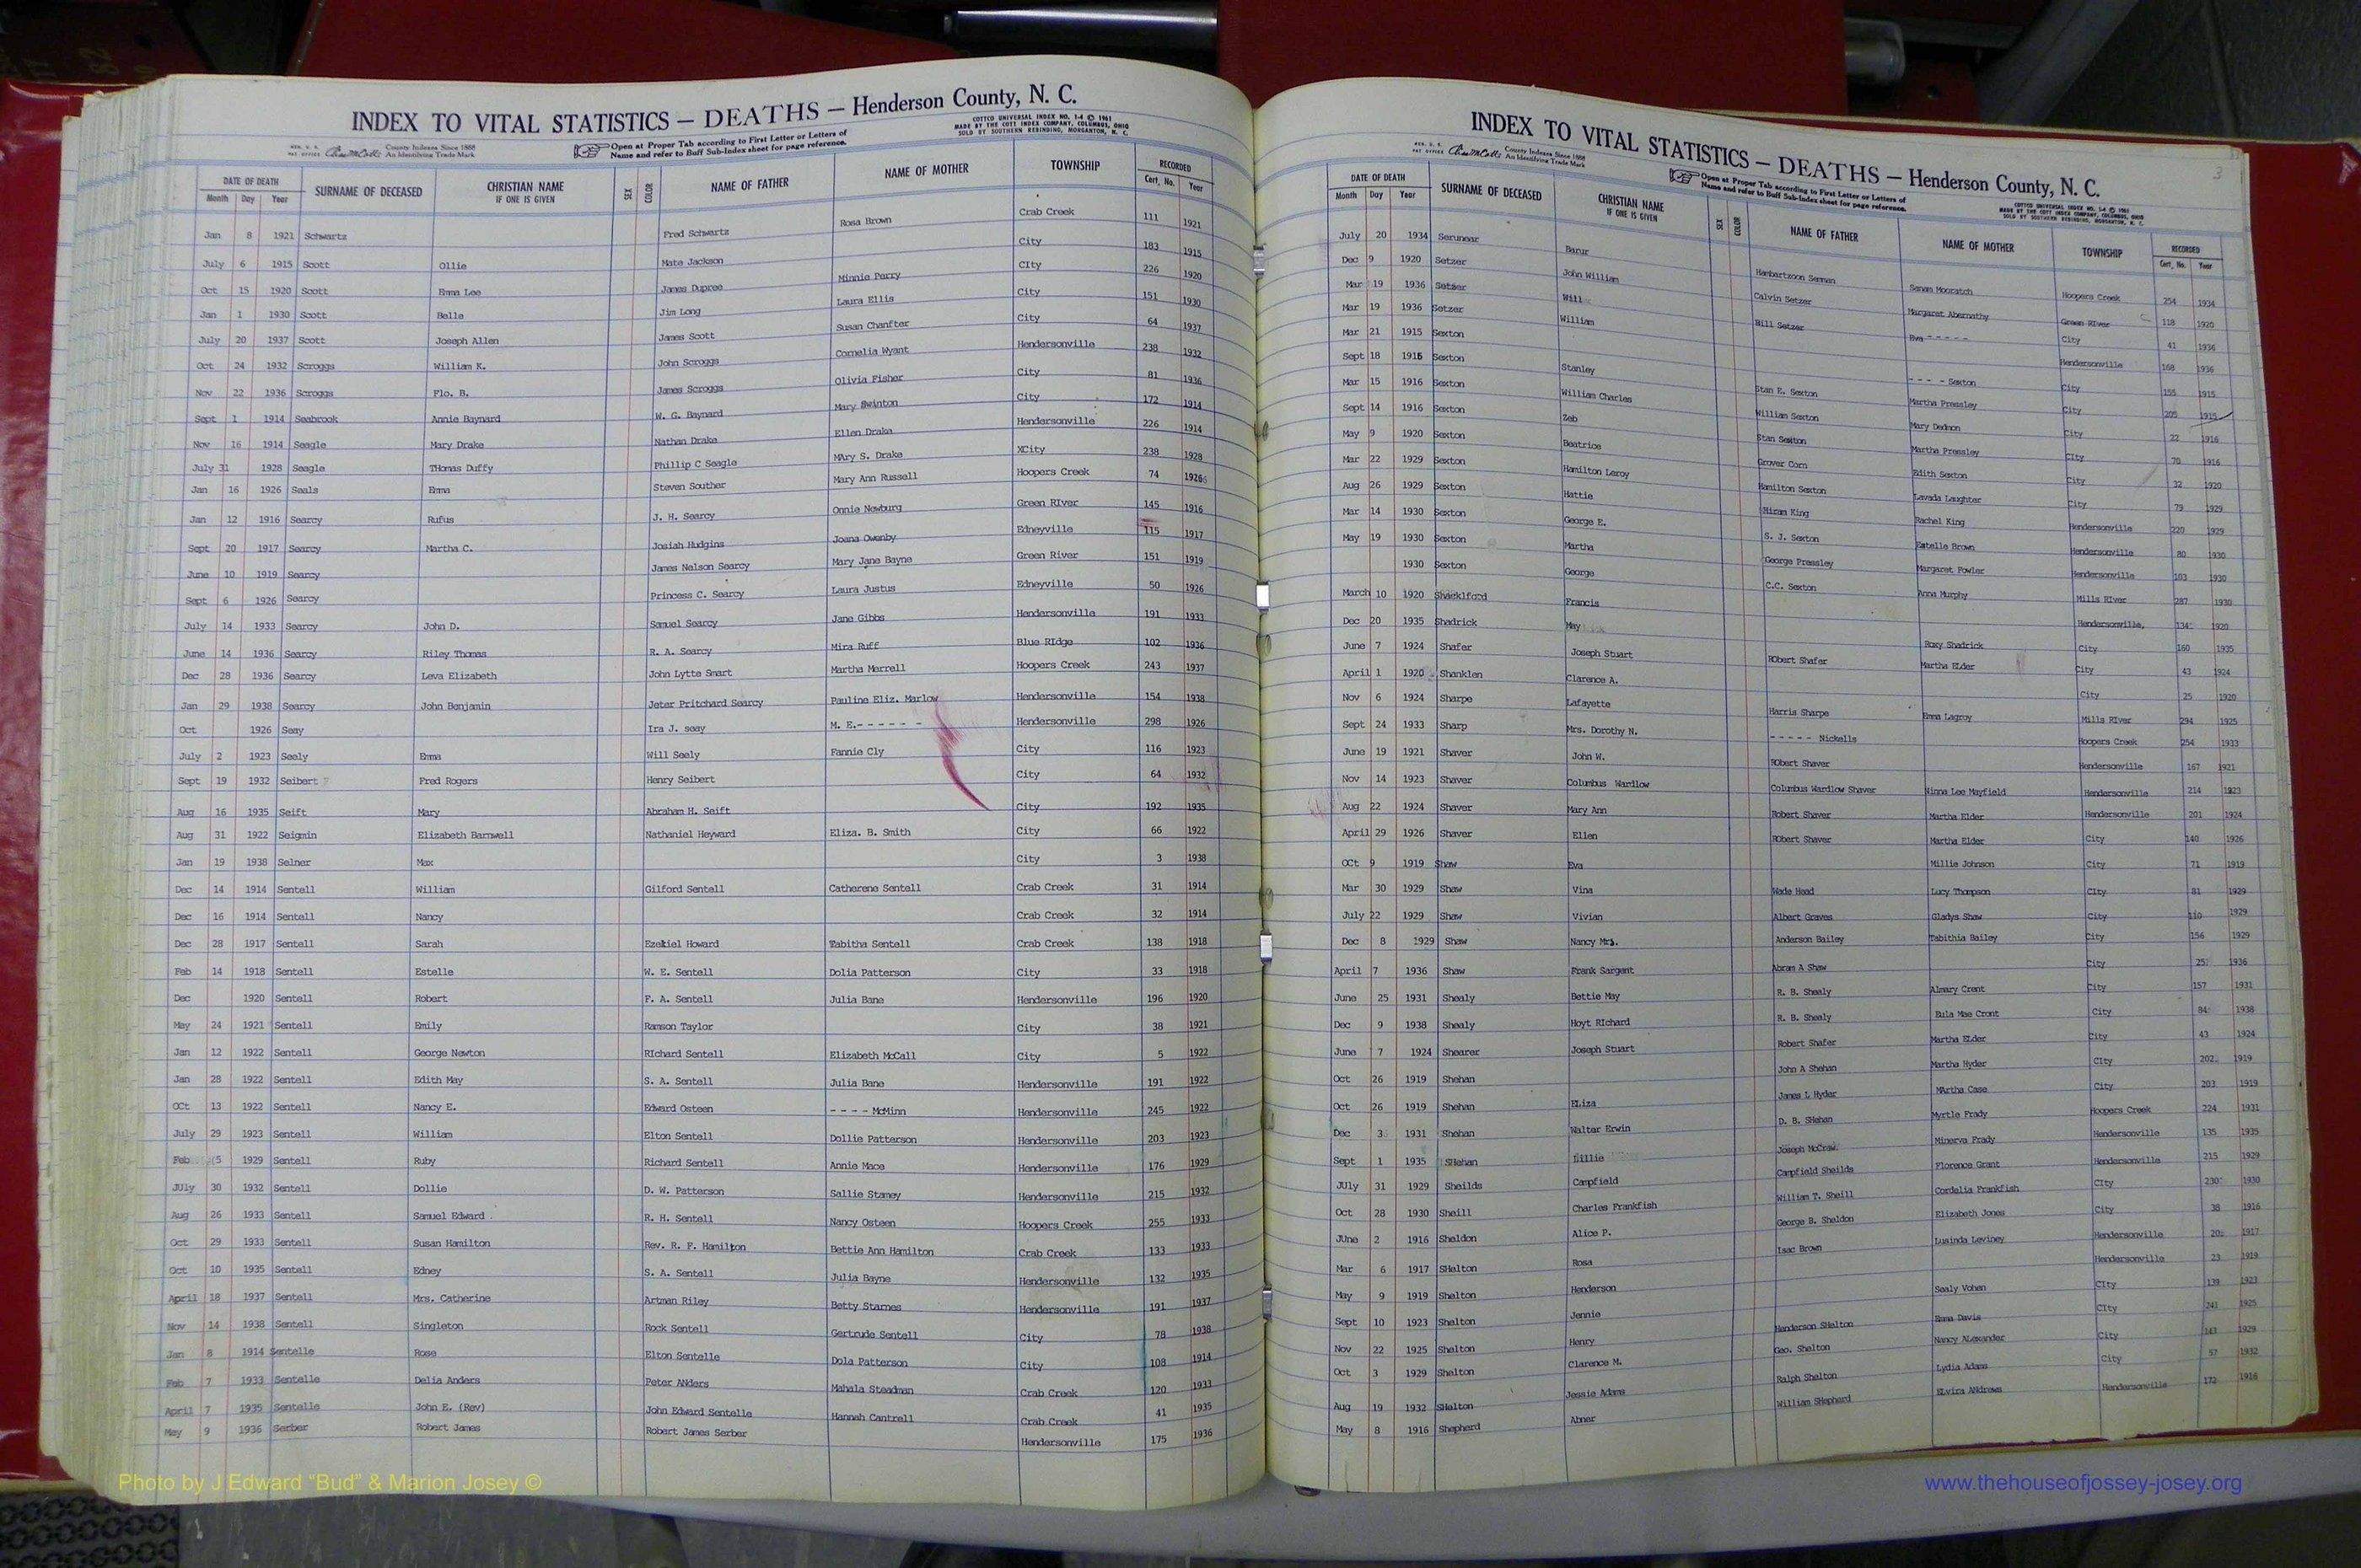 INDEX TO VITAL STATISTICS — DEATHS — Henderson County, N. C.
REG. U. S. PAT OFFICE County Indexes Since 1888 An Identifying Trade Mark
Open at Proper Tab according to First Letter or Letters of Name and refer to Buff Sub-Index sheet for page reference.
COTTCO UNIVERSAL INDEX NO. 1-4 © 1961
MADE BY THE COTT INDEX COMPANY, COLUMBUS, OHIO
SOLD BY SOUTHERN REBINDING, MORGANTON, N. C.
DATE OF DEATH Month Day Year SURNAME OF DECEASED CHRISTIAN NAME IF ONE IS GIVEN SEX COLOR NAME OF FATHER NAME OF MOTHER TOWNSHIP RECORDED Cert. No. Year
Jan 8 1921 Schwartz Fred Schwartz Rosa Brown Crab Creek 111 1921
July 6 1915 Scott Ollie Mate Jackson City 183 1915
Oct 15 1920 Scott Emma Lee James Dupree Minnie Perry CIty 226 1920
Jan 1 1930 Scott Belle Jim Long Laura Ellis City 151 1930
July 20 1937 Scott Joseph Allen James Scott Susan Chanfter City 64 1937
Oct 24 1932 Scroggs William K. John Scroggs Cornelia Wyant Hendersonville 238 1932
Nov 22 1936 Scroggs Flo. B. James Scroggs Olivia Fisher City 81 1936
Sept 1 1914 Seabrook Annie Baynard W. G. Baynard Mary Swinton City 172 1914
Nov 16 1914 Seagle Mary Drake Nathan Drake Ellen Drake Hendersonville 226 1914
July 31 1928 Seagle THomas Duffy Phillip C Seagle MAry S. Drake XCity 238 1928
Jan 16 1926 Seals Emma Steven Souther Mary Ann Russell Hoopers Creek 74 1926
Jan 12 1916 Searcy Rufus J. H. Searcy Onnie Newburg Green RIver 145 1916
Sept 20 1917 Searcy Martha C. Josiah Hudgins Joana Owenby Edneyville 115 1917
June 10 1919 Searcy James Nelson Searcy Mary Jane Bayne Green River 151 1919
Sept 6 1926 Searcy Princess C. Searcy Laura Justus Edneyville 50 1926
July 14 1933 Searcy John D. Samuel Searcy Jane Gibbs Hendersonville 191 1933
June 14 1936 Searcy Riley Thomas R. A. Searcy Mira Ruff Blue RIdge 102 1936
Dec 28 1936 Searcy Leva Elizabeth John Lytte Smart Martha Merrell Hoopers Creek 243 1937
Jan 29 1938 Searcy John Benjamin Jeter Pritchard Searcy Pauline Eliz. Marlow Hendersonville 154 1938
Oct 1926 Seay Ira J. seay M. E.- - - - - - Hendersonville 298 1926
July 2 1923 Seely Emma Will Seely Fannie Cly City 116 1923
Sept 19 1932 Seibert Fred Rogers Henry Seibert City 64 1932
Aug 16 1935 Seift Mary Abraham H. Seift City 192 1935
Aug 31 1922 Seigmin Elizabeth Barnwell Nathaniel Heyward Eliza. B. Smith City 66 1922
Jan 19 1938 Selner Max City 3 1938
Dec 14 1914 Sentell William Gilford Sentell Catherene Sentell Crab Creek 31 1914
Dec 16 1914 Sentell Nancy Crab Creek 32 1914
Dec 28 1917 Sentell Sarah Ezekiel Howard Tabitha Sentell Crab Creek 138 1918
Feb 14 1918 Sentell Estelle W. E. Sentell Dolia Patterson City 33 1918
Dec 1920 Sentell Robert F. A. Sentell Julia Bane Hendersonville 196 1920
May 24 1921 Sentell Emily Ramson Taylor City 38 1921
Jan 12 1922 Sentell George Newton RIchard Sentell Elizabeth McCall City 5 1922
Jan 28 1922 Sentell Edith May S. A. Sentell Julia Bane Hendersonville 191 1922
OCt 13 1922 Sentell Nancy E. Edward Osteen - - - - McMinn Hendersonville 245 1922
July 29 1923 Sentell William Elton Sentell Dollie Patterson Hendersonville 203 1923
Feb 5 1929 Sentell Ruby Richard Sentell Annie Mace Hendersonville 176 1929
JUly 30 1932 Sentell Dollie D. W. Patterson Sallie Stamey Hendersonville 215 1932
Aug 26 1933 Sentell Samuel Edward R. H. Sentell Nancy Osteen Hoopers Creek 255 1933
Oct 29 1933 Sentell Susan Hamilton Rev. R. F. Hamilton Bettie Ann Hamilton Crab Creek 133 1933
Oct 10 1935 Sentell Edney S. A. Sentell Julia Bayne Hendersonville 132 1935
April 18 1937 Sentell Mrs. Catherine Artman Riley Betty Starnes Hendersonville 191 1937
Nov 14 1938 Sentell Singleton Rock Sentell Gertrude Sentell City 78 1938
Jan 8 1914 Sentelle Rose Elton Sentelle Dola Patterson City 108 1914
Feb 7 1933 Sentelle Delia Anders Peter ANders Mahala Steadman Crab Creek 120 1933
April 7 1935 Sentelle John E. (Rev) John Edward Sentelle Hannah Cantrell Crab Creek 41 1935
May 9 1936 Serber Robert James Robert James Serber Hendersonville 175 1936
INDEX TO VITAL STATISTICS — DEATHS — Henderson County, N. C.
3
REG. U. S. PAT OFFICE County Indexes Since 1888 An Identifying Trade Mark
Open at Proper Tab according to First Letter or Letters of Name and refer to Buff Sub-Index sheet for page reference.
COTTCO UNIVERSAL INDEX NO. 1-4 © 1961
MADE BY THE COTT INDEX COMPANY, COLUMBUS, OHIO
SOLD BY SOUTHERN REBINDING, MORGANTON, N. C.
DATE OF DEATH Month Day Year SURNAME OF DECEASED CHRISTIAN NAME IF ONE IS GIVEN SEX COLOR NAME OF FATHER NAME OF MOTHER TOWNSHIP RECORDED Cert. No. Year
July 20 1934 Serunear Barur Hambartzoon Serman Sanam Mooratch Hoopers Creek 254 1934
Dec 9 1920 Setzer John William Calvin Setzer Margaret Abernathy Green RIver 118 1920
Mar 19 1936 Setzer Will Bill Setzer Eva - - - - - City 41 1936
Mar 19 1936 Setzer William Hendersonville 168 1936
Mar 21 1915 Sexton - - - - Sexton City 155 1915
Sept 18 1915 Sexton Stanley Stan E. Sexton Martha Pressley City 205 1915
Mar 15 1916 Sexton William Charles William Sexton Mary Dedmon City 22 1916
Sept 14 1916 Sexton Zeb Stan Sexton Martha Pressley CIty 70 1916
May 9 1920 Sexton Beatrice Grover Corn Edith Sexton City 32 1920
Mar 22 1929 Sexton Hamilton Leroy Hamilton Sexton Lavada Laughter City 79 1929
Aug 26 1929 Sexton Hattie Hiram King Rachel King Hendersonville 220 1929
Mar 14 1930 Sexton George E. S. J. Sexton Estelle Brown Hendersonville 80 1930
May 19 1930 Sexton Martha George Pressley Margaret Fowler Hendersonville 103 1930
1930 Sexton George C.C. Sexton Anna Murphy Mills RIver 287 1930
March 10 1920 Shacklford Francis Hendersonville, 134 1920
Dec 20 1935 Shadrick May Roxy Shadrick City 160 1935
June 7 1924 Shafer Joseph Stuart RObert Shafer Martha ELder City 43 1924
April 1 1920 Shanklen Clarence A. City 25 1920
Nov 6 1924 Sharpe Lafayette Harris Sharpe Emma Lagroy Mills RIver 294 1925
Sept 24 1933 Sharp Mrs. Dorothy N. - - - - - Nickells Hoopers Creek 254 1933
June 19 1921 Shaver John W. RObert Shaver Hendersonville 167 1921
Nov 14 1923 Shaver Columbus Wardlow Columbus Wardlow Shaver Ninna Lee Mayfield Hendersonville 214 1923
Aug 22 1924 Shaver Mary Ann Robert Shaver Martha Elder Hendersonville 201 1924
April 29 1926 Shaver Ellen RObert Shaver Martha Elder City 140 1926
OCt 9 1919 Shaw Eva Millie Johnson City 71 1919
Mar 30 1929 Shaw Vina Wade Head Lucy Thompson City 81 1929
July 22 1929 Shaw Vivian Albert Graves Gladys Shaw City 110 1929
Dec 8 1929 Shaw Nancy Mrs. Anderson Bailey Tabithia Bailey City 156 1929
April 7 1936 Shaw Frank Sargent Abram A Shaw City 25 1936
June 25 1931 Shealy Bettie May R. B. Shealy Almary Cront City 157 1931
Dec 9 1938 Shealy Hoyt RIchard R. B. Shealy Eula Mae Cront City 84 1938
June 7 1924 Shearer Joseph Stuart Robert Shafer Martha ELder City 43 1924
Oct 26 1919 Shehan John A Shehan Martha Hyder CIty 202 1919
Oct 26 1919 Shehan ELiza James L Hyder MArtha Case City 203 1919
Dec 3 1931 Shehan Walter Erwin D. B. SHehan Myrtle Frady Hoopers Creek 224 1931
Sept 1 1935 SHehan Lillie Joseph McCraw Minerva Frady Hendersonville 135 1935
JUly 31 1929 Sheilds Campfield Campfield Sheilds Florence Grant Hendersonville 215 1929
Oct 28 1930 Sheill Charles Frankfish William T. Sheill Cordelia Frankfish CIty 230 1930
JUne 2 1916 Sheldon Alice P. George B. Sheldon Elizabeth Jones City 38 1916
Mar 6 1917 SHelton Rosa Isac Brown Lusinda Leviney Hendersonville 20 1917
May 9 1919 Shelton Henderson Hendersonville 23 1919
Sept 10 1923 Shelton Jennie Sealy Vohen CIty 139 1923
Nov 22 1925 Shelton Henry Henderson SHelton Emma Davis CIty 241 1925
Oct 3 1929 Shelton Clarence M. Geo. Shelton Nancy ALexander City 143 1929
Aug 19 1932 SHelton Jessie Adams Ralph Shelton Lydia Adams City 57 1932
May 8 1916 Shepherd Abner William SHepherd ELvira ANdrews Hendersonville 172 1916
Photo by J Edward “Bud” & Marion Josey ©
www.thehouseofjossey-josey.org